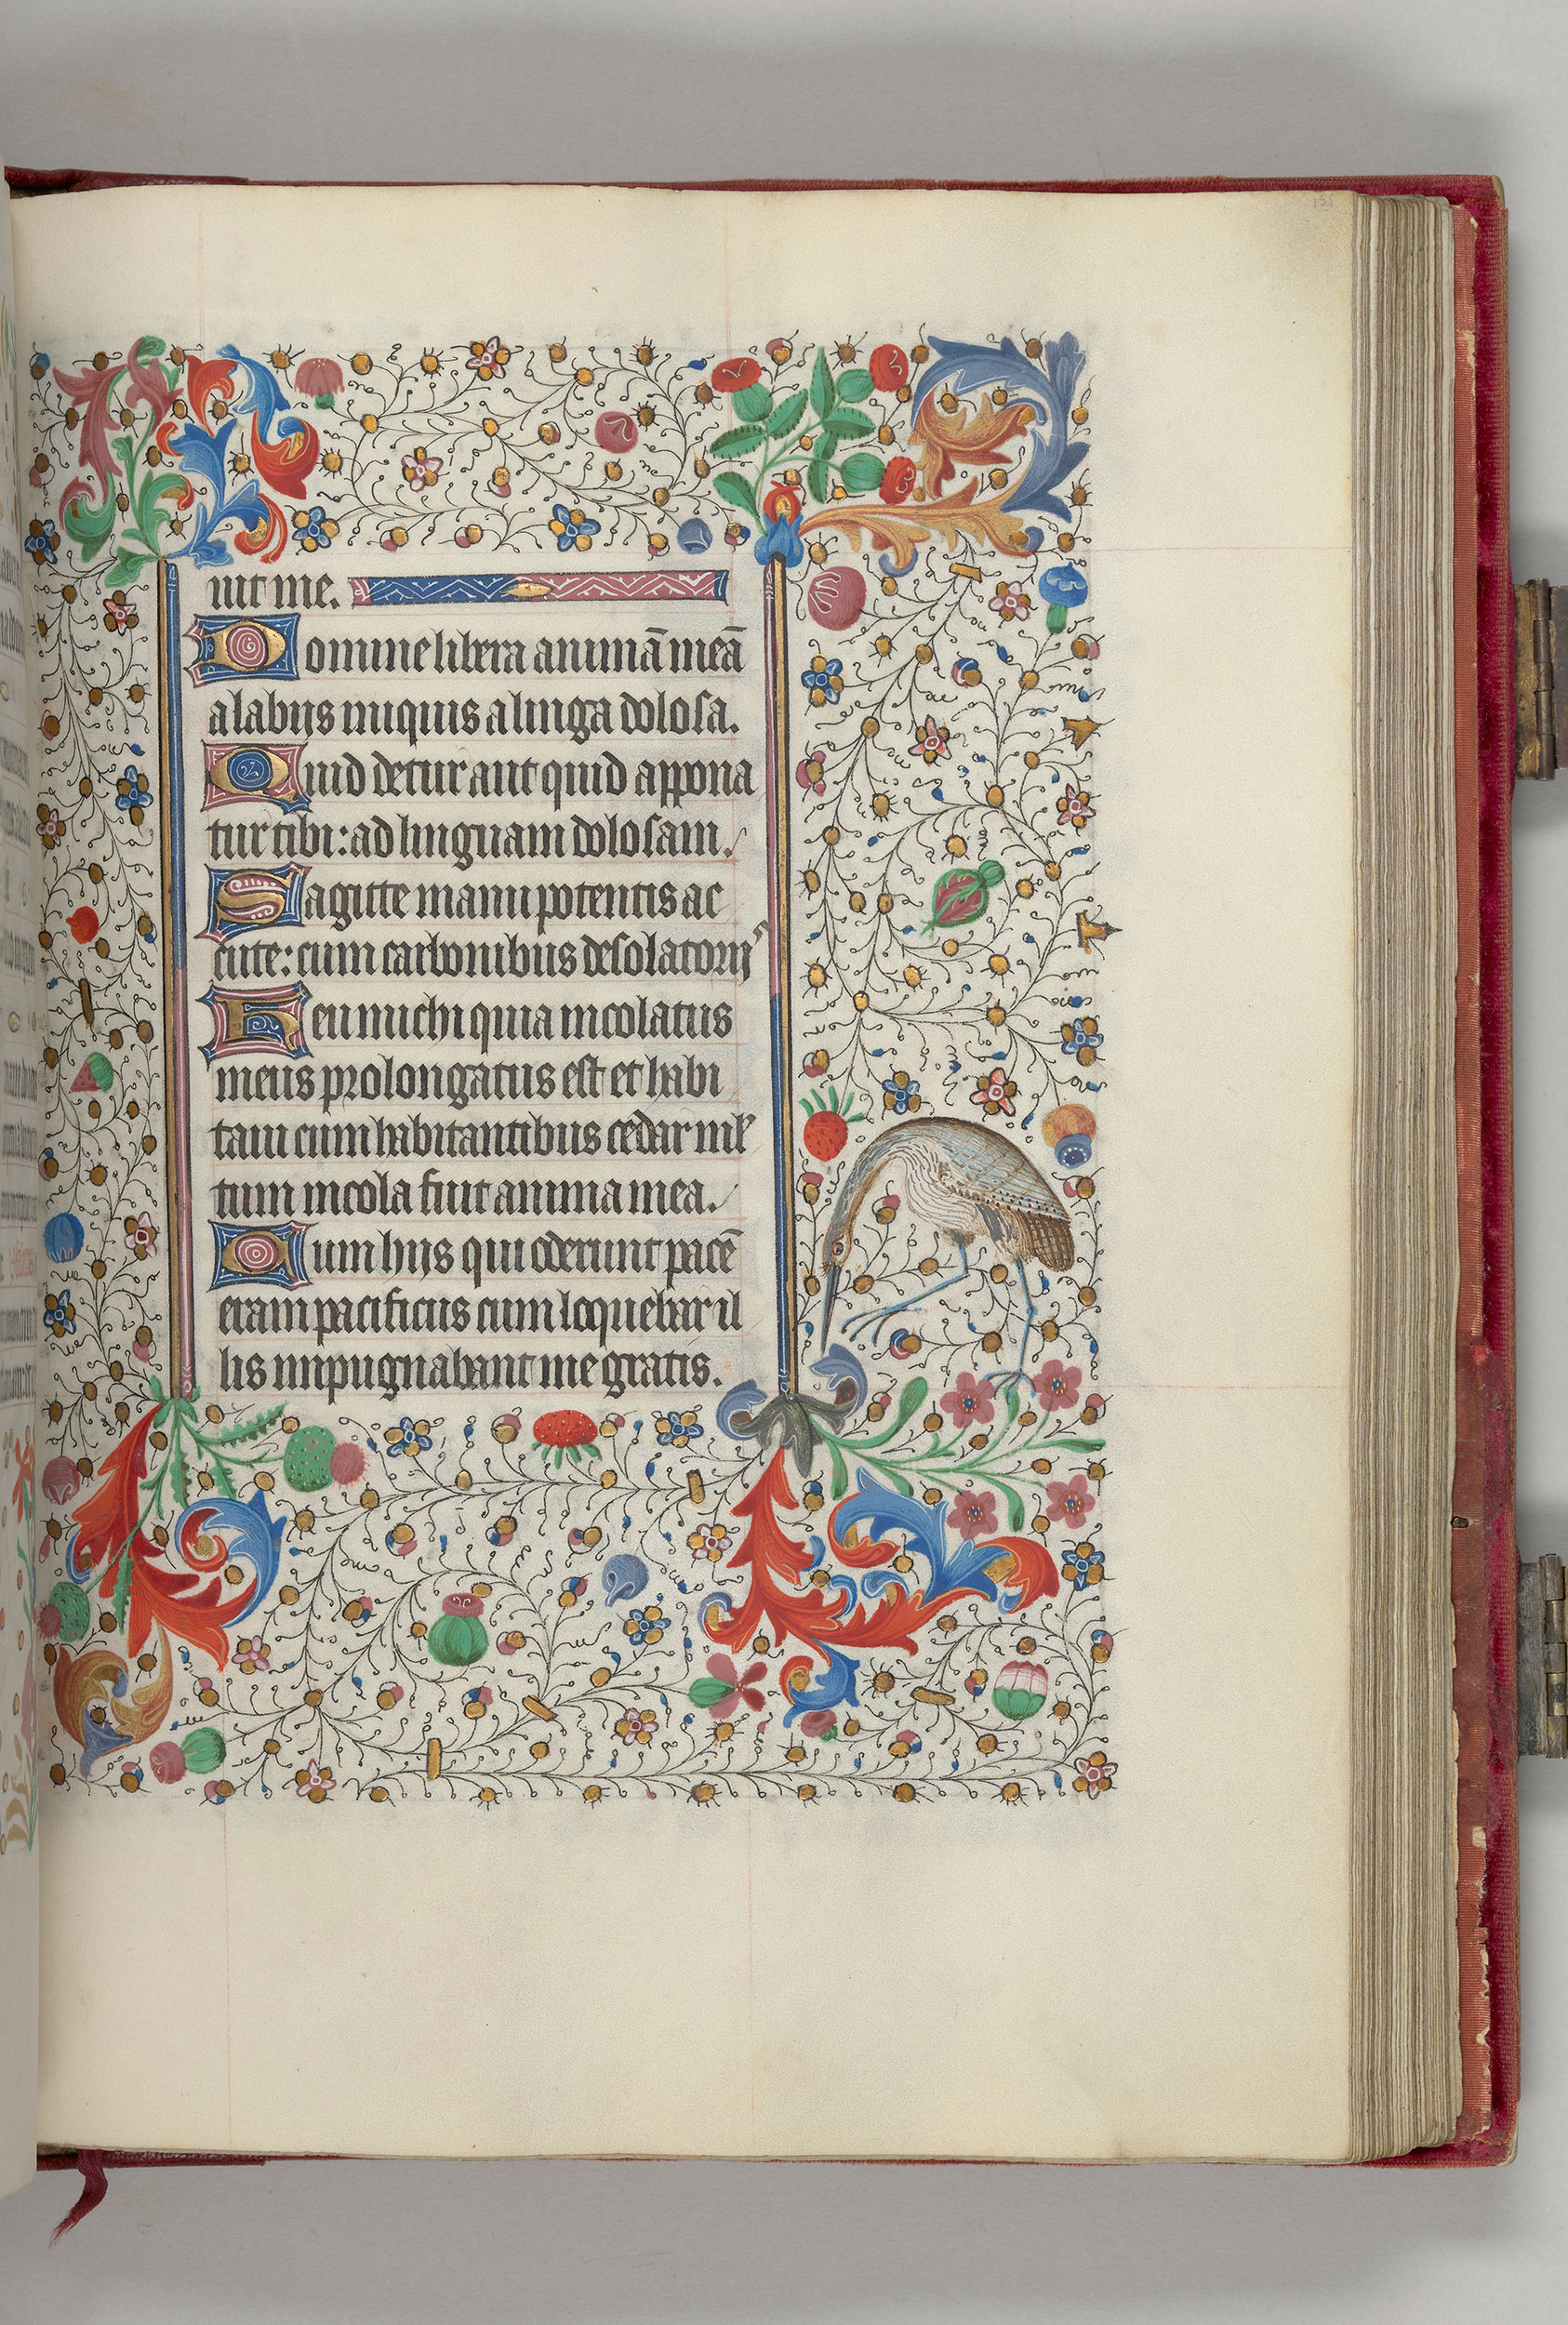 uit me.
Domine libera animā meā
a labijs iniquis a linga dolosa.
Quid detur aut quid appona
tur tibi: ad linguam dolosam.
Sagitte manu potentis ac
cute: cum carbonibus desolatorꝝ
Heu michi quia incolatus
meus prolongatus est et habi
taui cum habitantibus cedar ml̓
tum incola fuit anima mea.
Cum hijs qui oderunt pacē
eram pacificus cum loquebar il
lis impugnabant me gratis.